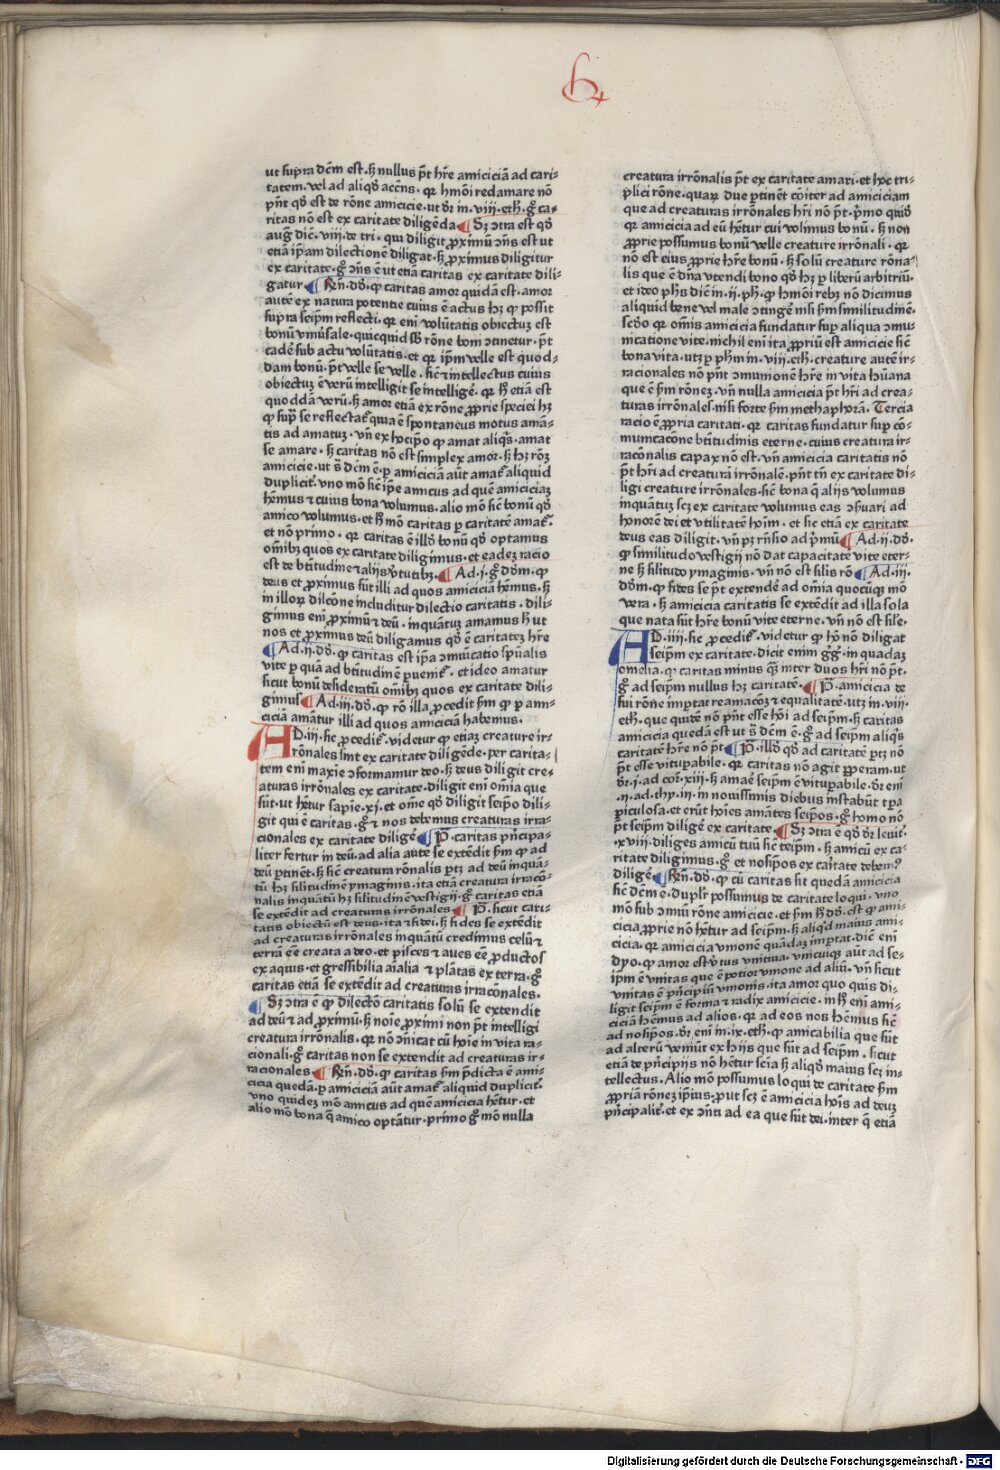 ut supra dc̄m est. ſꝫ nullus pōt hr̄e amiciciā ad cari-
tatem. vel ad aliqḋ accn̄s. qꝛ hm̄oi redamare nō
pn̄t qḋ est de rōne amicicie. ut dꝛ in. viij. eth̄. gͦ ca-
ritas nō est ex caritate diligēda ¶ Sꝫ ↄtra est qḋ
aug̉ dic̄. viij. de tri. qui diligit ꝓximū ↄn̄s est ut
etiā ip̄am dilectionē diligat. ſꝫ ꝓximus diligitur
ex caritate. gͦ ↄn̄s ē ut etiā caritas ex caritate dili-
gatur ¶ Rn̄. dḋ. ꝙ caritas amor quidā est. amor
autē ex natura potentie cuius ē actus hꝫ ꝙ possit
supra seip̄m reflecti. qꝛ eni volūtatis obiectuꝫ est
bonū vniūsale. quicquid sƀ rōne boni ↄtinetur. pōt
cadē sub actu volūtatis. et qꝛ ip̄m velle est quod-
dam bonū. pōt velle se velle. sic̄ ⁊ intellectus cuius
obiectuꝫ ē verū intelligit se intelligē. qꝛ h̄ etiā est
quoddā verū. ſꝫ amor etiā ex rōne ꝓprie speciei hꝫ
ꝙ supͣ se reflectat̉ quia ē spontaneus motus amā-
tis ad amatuꝫ. vn̄ ex hoc ip̄o ꝙ amat aliqͥs. amat
se amare. ſꝫ caritas nō est simplex amor. ſꝫ hꝫ rōꝫ
amicicie. ut s̄ dc̄m ē. ꝑ amiciciā aūt amat̉ aliquid
duplicit̉. vno mō sic̄ ip̄e amicus ad quē amiciciaꝫ
hēmus ⁊ cuius bona volumus. alio mō sic̄ bonū qḋ
amico volumus. et h̄ mō caritas ꝑ caritatē amat̉.
et nō primo. qꝛ caritas ē illḋ bonū qḋ optamus
om̄ibꝫ quos ex caritate diligimus. et eadeꝫ racio
est de bt̄itudine ⁊ alijs v̉tutibꝫ. ¶ Ad. j. gͦ dōm. ꝙ
deus et ꝓximus sūt illi ad quos amiciciā hēmus. ſꝫ
in illoꝝ dilcōne includitur dilectio caritatis. dili-
gimus eni ꝓximū ⁊ deū. inquātuꝫ amamus h̄ ut
nos et ꝓximus deū diligamus qḋ ē caritateꝫ hr̄e
¶ Ad. ij. dḋ. ꝙ caritas est ip̄a ↄmūicatio sp̄ualis
vite ꝑ quā ad bt̄itudinē ꝑuenit̉. et ideo amatur
sicut bonū desideratū om̄ibꝫ quos ex caritate dili-
gimus ¶ Ad. iij. dḋ. ꝙ rō illa ꝓcedit sm̄ ꝙ ꝑ ami-
ciciā amātur illi ad quos amiciciā habemus.
AD. iij. sic ꝓcedit̉. videtur ꝙ etiaꝫ creature ir-
rōnales sint ex caritate diligēde. per carita-
tem eni maxīe ↄformamur deo. ſꝫ deus diligit cre-
aturas irrōnales ex caritate. diligit eni omīa que
sūt. ut hr̄tur sapīe. xj. et om̄e qḋ diligit seip̄o dili-
git qui ē caritas. gͦ ⁊ nos debemus creaturas irra-
cionales ex caritate diligē ¶ P̄. caritas pn̄cipa-
liter fertur in deū. ad alia autē se extēdit sm̄ ꝙ ad
deū ꝑtinēt. ſꝫ sic̄ creatura rōnalis ꝑtꝫ ad deū inquā-
tū hꝫ silitudinē ymaginis. ita etiā creatura irracō-
nalis inquātū hꝫ silitudinē vestigij. gͦ caritas etiā
se extēdit ad creaturas irrōnales ¶ P̄. sicut cari-
tatis obiectū est deus. ita ⁊ fidei. ſꝫ fides se extēdit
ad creaturas irrōnales inquātū credimus celū ⁊
terrā eē creata a deo. et pisces ⁊ aues eē ꝓductos
ex aquis. et gressibilia aīalia ⁊ plātas ex terra. gͦ
caritas etiā se extēdit ad creaturas irracōnales.
¶ Sꝫ ↄtra ē ꝙ dilectō caritatis solū se extendit
ad deū ⁊ ad ꝓximū. ſꝫ noīe ꝓximi non pōt intelligi
creatura irrōnalis. qꝛ nō ↄīcat cū hoīe in vita ra-
cionali. gͦ caritas non se extendit ad creaturas ir-
racionales ¶ Rn̄. dḋ. ꝙ caritas sm̄ p̄dicta ē ami-
cicia quedā. ꝑ amiciciā aūt amat̉ aliquid duplicit̉.
vno quideꝫ mō amicus ad quē amicicia hr̄tur. et
alio mō bona q̄ amico optātur. primo gͦ mō nulla
creatura irrōnalis pōt ex caritate amari. et hoc tri-
plici rōne. quaꝝ due ꝑtinēt cōiter ad amiciciam
que ad creaturas irrōnales hr̄i nō pōt. p̄mo quidē
qꝛ amicicia ad eū hr̄tur cui volumus bonū. ſꝫ non
ꝓprie possumus bonū velle creature irrōnali. qꝛ
nō est eius ꝓprie hr̄e bonū. ſꝫ solū creature rōna-
lis que ē dn̄a vtendi bono qḋ hꝫ ꝑ liberū arbitriū.
et ideo ph̄s dic̄ in. ij. ph̄. ꝙ hm̄oi rebꝫ nō dicimus
aliquid bene vel male ↄtingē nisi sm̄ similitudinē.
sc̄do qꝛ om̄is amicicia fundatur suꝑ aliqua ↄmu-
nicatione vite. nichil eni ita ꝓpriū est amicicie sic̄
bona vita. utꝫ ꝑ ph̄m in. viij. eth̄. creature autē ir-
racionales nō pn̄t ↄmunionē hr̄e in vita hūana
que ē sm̄ rōneꝫ. vn̄ nulla amicicia pōt hr̄i ad crea-
turas irrōnales. nisi forte sm̄ methaphorā. Tercia
racio ē ꝓpria caritati. qꝛ caritas fundatur suꝑ cō-
municacōne bt̄itudinis eterne. cuius creatura ir-
racōnalis capax nō est. vn̄ amicicia caritatis nō
pōt hr̄i ad creaturā irrōnalē. pn̄t tn̄ ex caritate di-
ligi creature irrōnales. sic̄ bona q̄ alijs volumus
inquātuꝫ scꝫ ex caritate volumus eas ↄseruari ad
honorē dei et vtilitatē hoīm. et sic etiā ex caritate
deus eas diligit. vn̄ pꝫ rn̄sio ad p̄mū ¶ Ad. ij. dḋ.
ꝙ similitudo vestigij nō dat capacitatē vite eter-
ne ſꝫ silitudo ymaginis. vn̄ nō est silis rō ¶ Ad. iij.
dōm. ꝙ fides se pōt extendē ad omīa quocūqꝫ mō
vera. ſꝫ amicicia caritatis se extēdit ad illa sola
que nata sūt hr̄e bonū vite eterne. vn̄ nō est sile.
AD. iiij. sic ꝓcedit̉. videtur ꝙ hō nō diligat
seip̄m ex caritate. dicit enim gͥg̉. in quadaꝫ
omelia. ꝙ caritas minus qͣꝫ inter duos hr̄i nō pōt.
gͦ ad seip̄m nullus hꝫ caritatē. ¶ P̄. amicicia de
sui rōne imꝑtat reamacōꝫ ⁊ equalitatē. utꝫ in. viij.
eth̄. que quidē nō pn̄t esse hōi ad seip̄m. ſꝫ caritas
amicicia quedā est ut s̄ dc̄m ē. gͦ ad seip̄m aliqͥs
caritatē hr̄e nō pōt ¶ P̄. illḋ qḋ ad caritatē ꝑtꝫ nō
pōt esse vituꝑabile. qꝛ caritas nō agit ꝑperam. ut
dꝛ. j. ad coꝛ. xiij. ſꝫ amaē seip̄m ē vituꝑabile. dꝛ eni
.ij. ad. thy. iij. in nouissimis diebus instabūt tꝑa
ꝑiculosa. et erūt hoīes amātes seip̄os. gͦ homo nō
pōt seip̄m diligē ex caritate. ¶ Sꝫ ↄtra ē qḋ dꝛ leuit̉.
.xviij. diliges amicū tuū sic̄ teip̄m. ſꝫ amicū ex ca-
ritate diligimus. gͦ et nosip̄os ex caritate debemꝰ
diligē ¶ Rn̄. dḋ. ꝙ cū caritas sit quedā amicicia
sic̄ dc̄m ē. duplr̄ possumus de caritate loqui. vno
mō sub ↄmūi rōne amicicie. et sm̄ h̄ dḋ. est ꝙ ami-
cicia ꝓprie nō hr̄tur ad seip̄m. ſꝫ aliqͥd maius ami-
cicia. qꝛ amicicia vnionē quādaꝫ imꝑtat. dic̄ eni
dyo. ꝙ amor est v̉tus vnitiua. vnicuiqꝫ aūt ad se-
ip̄m ē vnitas que ē potior vnione ad aliū. vn̄ sicut
vnitas ē pn̄cipiū vnionis. ita amor quo quis di-
ligit seip̄m ē forma ⁊ radix amicicie. in h̄ eni ami-
ciciā hēmus ad alios. qꝛ ad eos nos hēmus sic̄
ad nosip̄os. dꝛ eni in. ix. eth̄. ꝙ amicabilia que sūt
ad alterū veniūt ex hijs que sūt ad seip̄m. sicut
etiā de pn̄cipijs nō hr̄tur scīa ſꝫ aliqḋ maius scꝫ in-
tellectus. Alio mō possumus loqui de caritate sm̄
ꝓpriā rōneꝫ ip̄ius. ꝓut scꝫ ē amicicia hoīs ad deuꝫ
pn̄cipalit̉. et ex ↄn̄ti ad ea que sūt dei. inter q̄ etiā
Digitalisierung gefördert durch die Deutsche Forschungsgemeinschaft - DFG